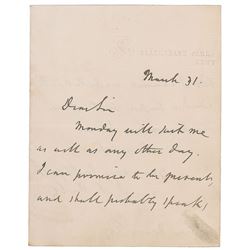 March 31.
Dear Sir
Monday will suit me
as well as any other day.
I can promise to be present,
and shall probably speak,